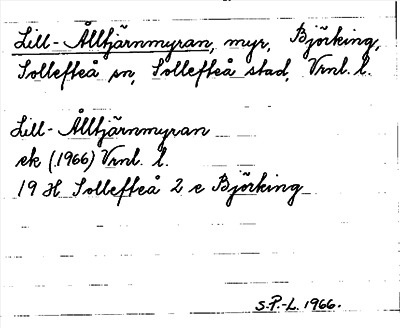 Lill-Ålltjärnmyran, myr, Björking,
Sollefteå sn, Sollefteå stad, Vrnl. l.
Lill-Ålltjärnmyran
ek (1966) Vrnl. l.
19 H Sollefteå 2 e Björking
S.P.-L. 1966.